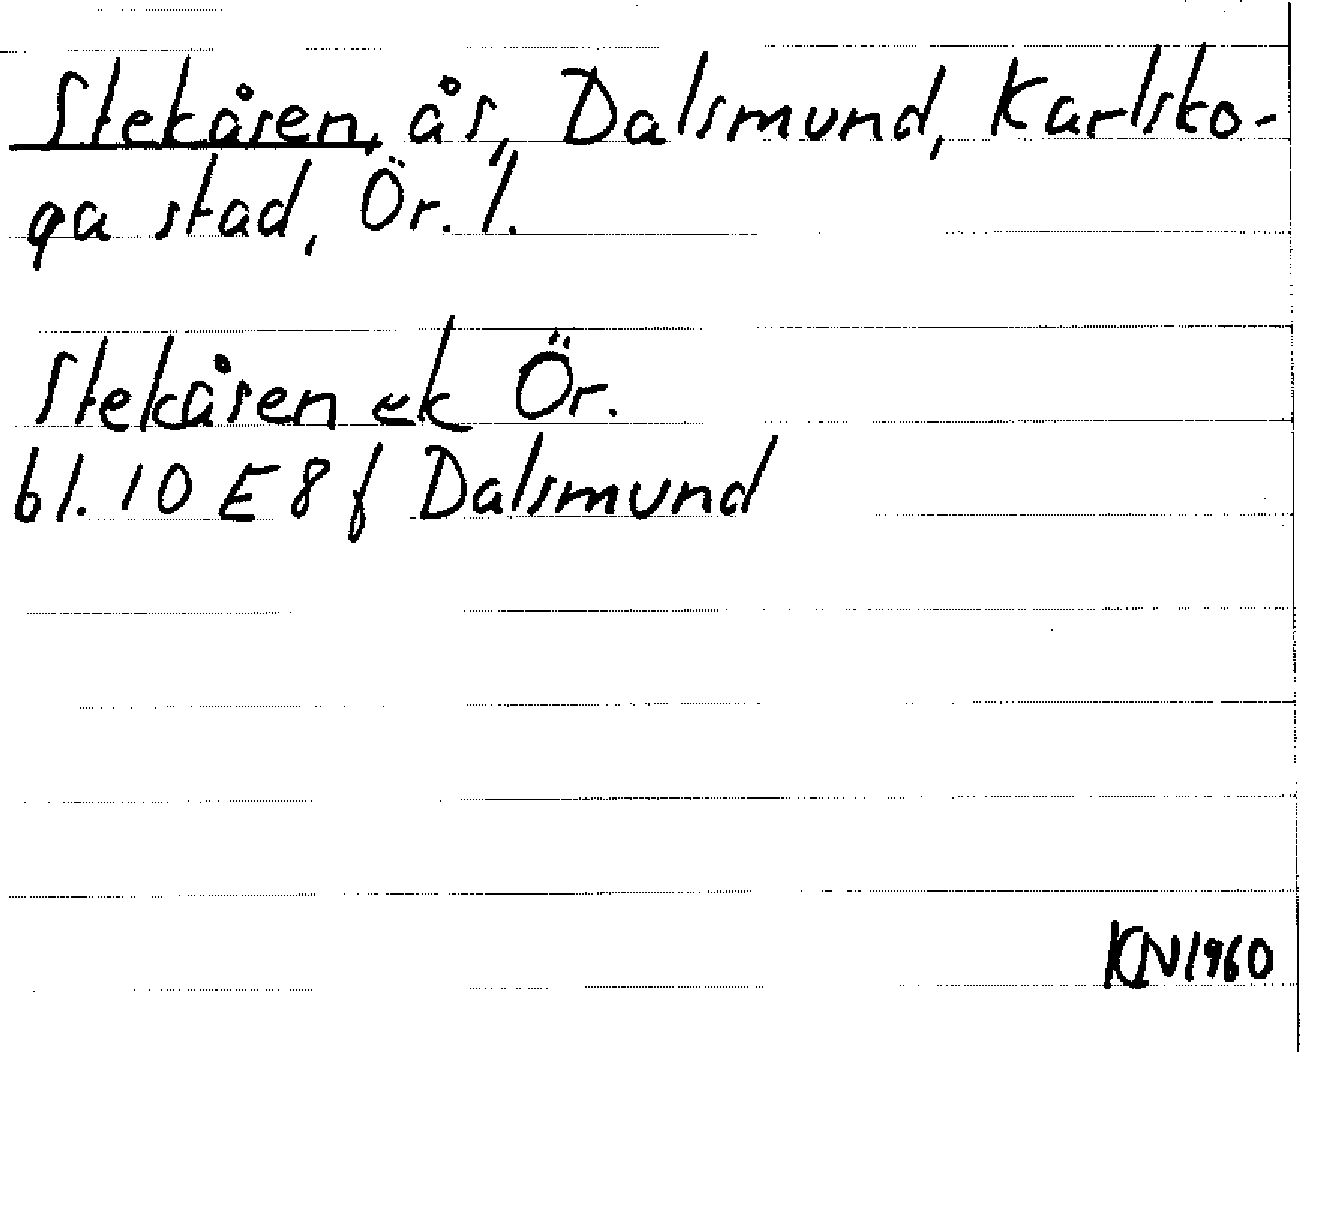 Stekåsen, ås, Dalsmund, Karlsko-
ga stad, Ör. l.
Stekåsen ek Ör.
bl. 10 E 8 f Dalsmund
KN 1960